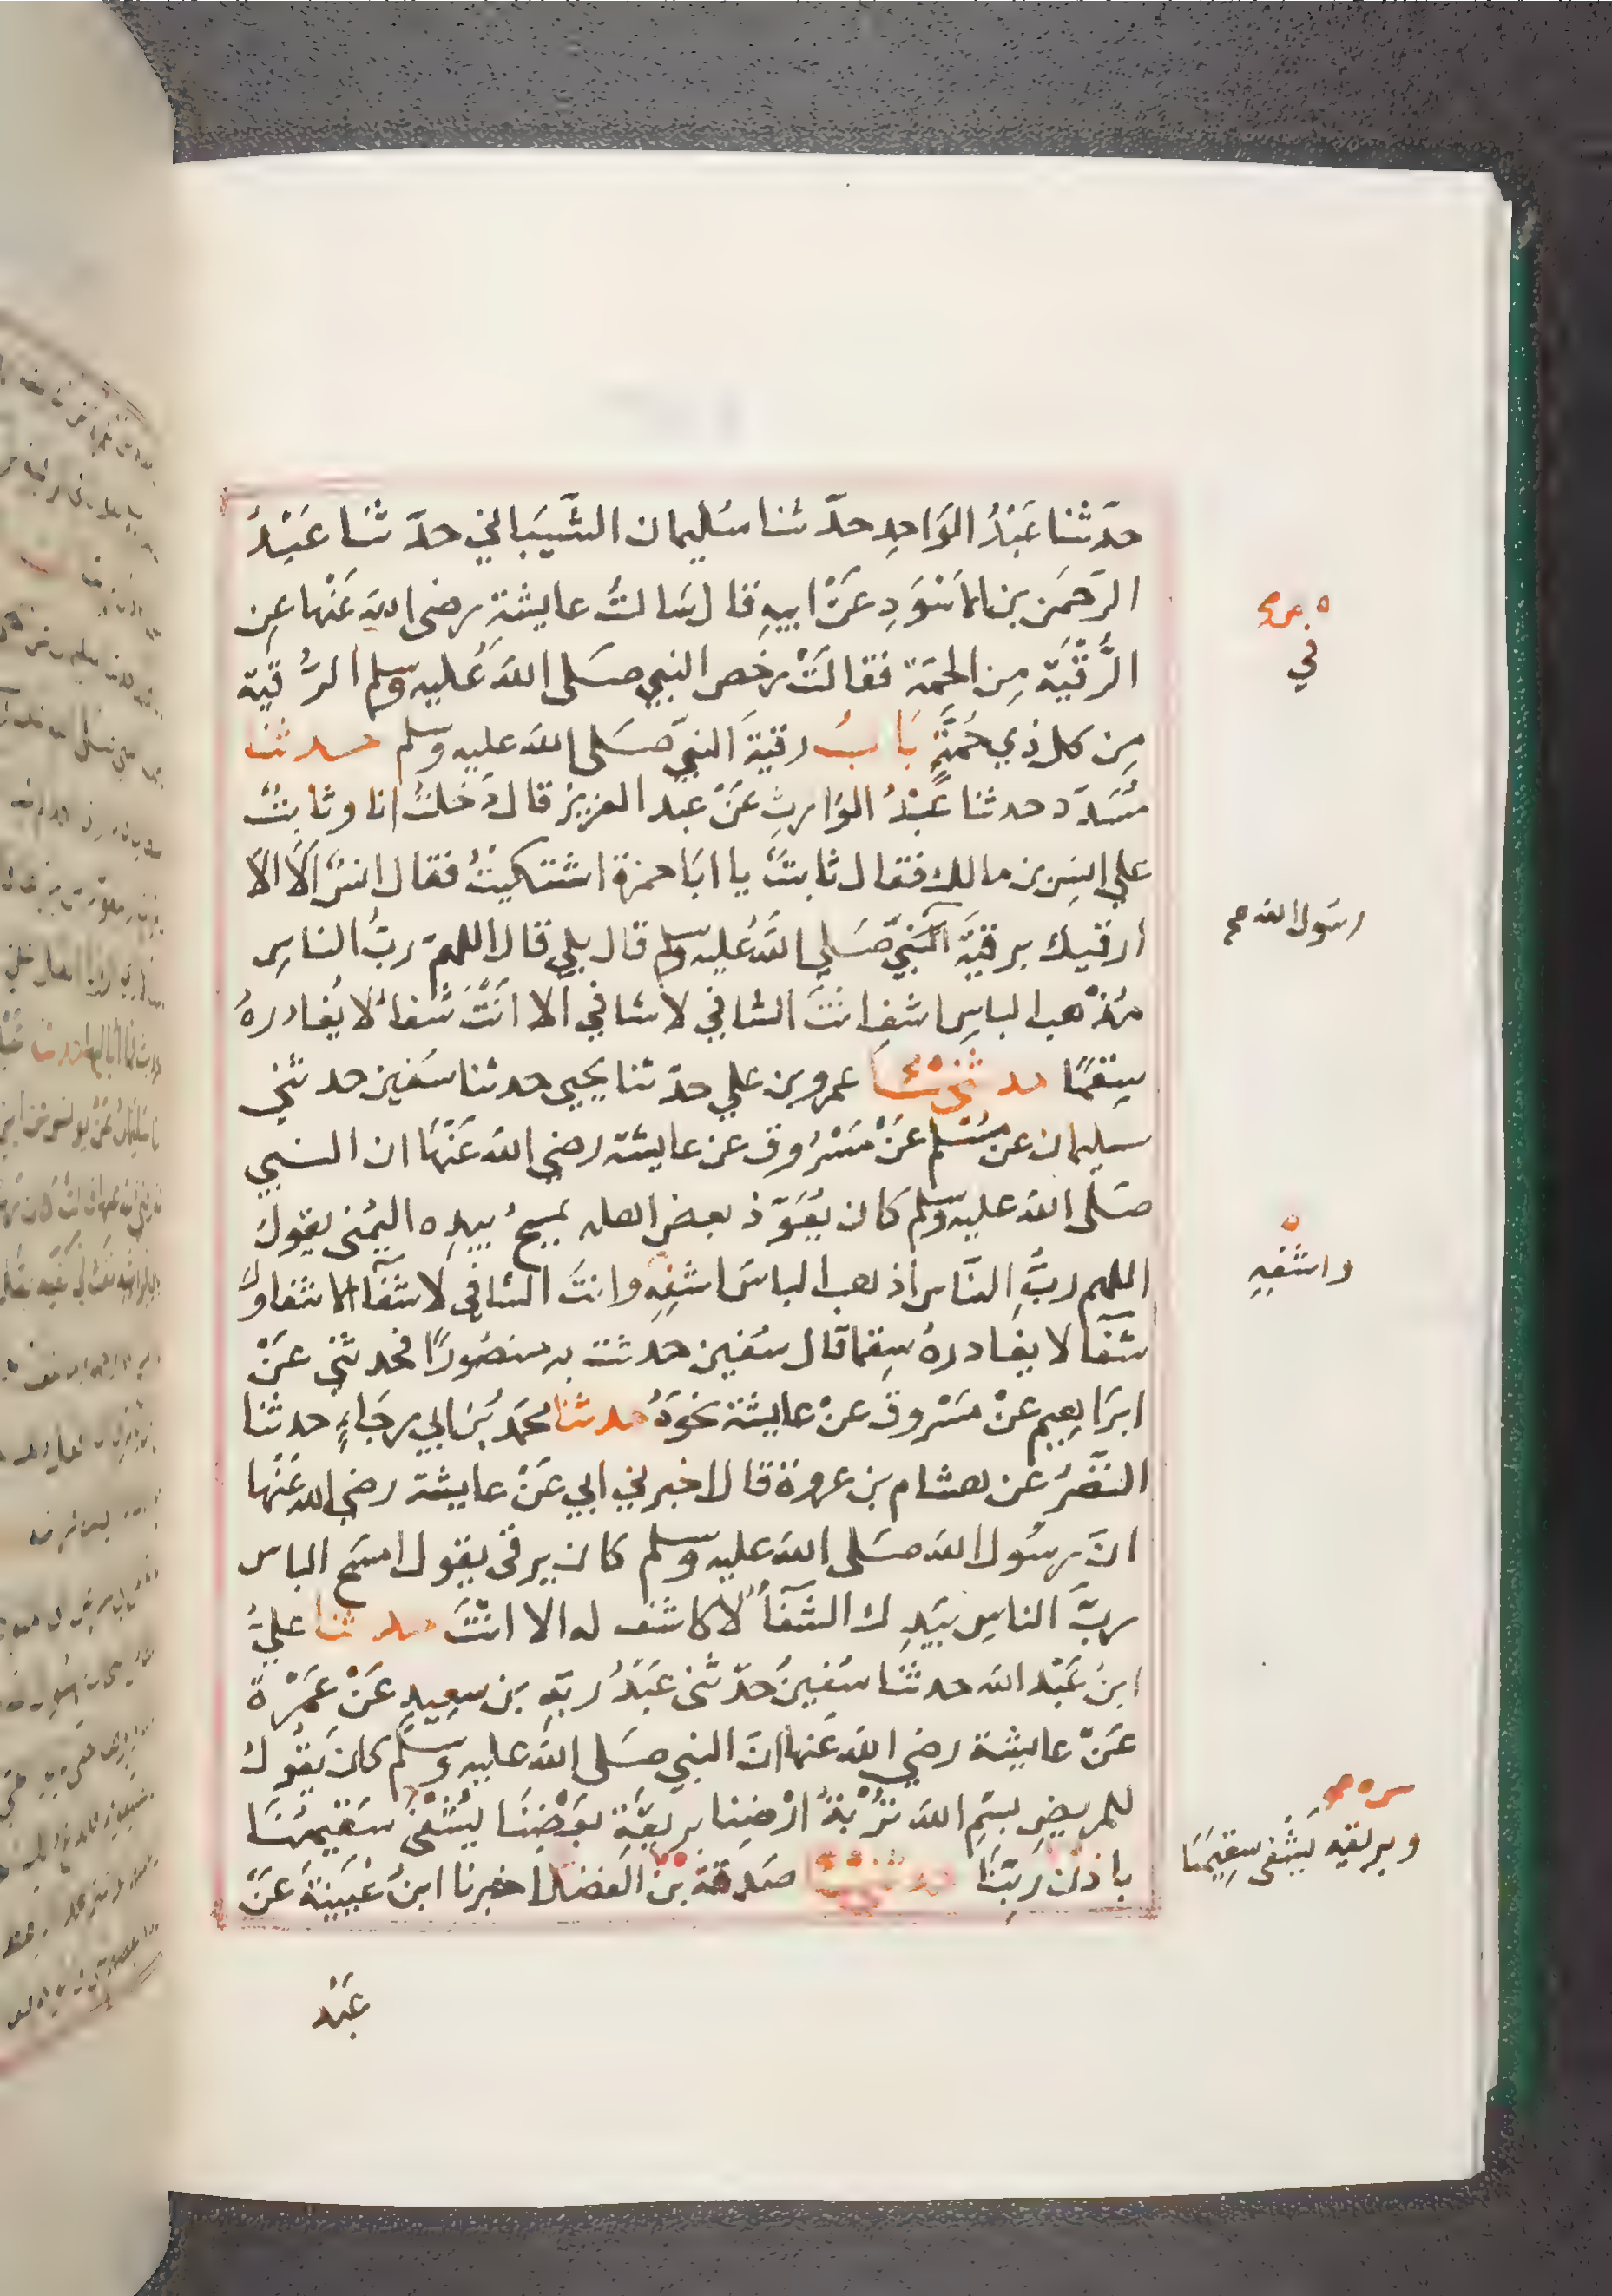 حدثنا عَبْدُ الوَاحِدِ حدّثنا سُليمان الشّيبَاني حدّثنَا عَبْدُ
الرّحمَن بن الاَسْوَدِ عَنْ ابيهِ قال سَالتُ عايشة رضى الله عَنْها عن
الرُّقْيَة مِن الحمَة فقالتْ رخص النبي صَلى اللهُ عَليه وسلم الرُّقية
مِن كل ذي حُمَةٍ بَابُ رقيَة النبّي صَلى الله عليه وسلم حدثنا
مُسَدّد حدثنا عَبْدُ الوَارِثِ عَنْ عبد العزيز قال دَخلتُ انا وثابتٌ
علي انسِ بن مالك فقال ثابتٌ يا ابَا حمزة اشتكيتُ فقال انسٌ اَلَا
ارقيك برقيَة النبّي صَلى اللهُ عليه وسلم قال بلي قال اللهمّ ربَّ الناسِ
مُذْهب الباسِ اشفِ انتَ الشافي لا شافي اَلا انْتَ شفاءً لا يُغادرهُ
سقمًا حدثني عمرو بن علي حدّثنا يحيى حدثنا سُفين حدثني
سليمان عن مُسْلم عَنْ مَسْرُوق عن عايشة رضى الله عَنْهَا ان النبي
صَلى الله عليه وسلم كان يُعَوّذ بعض اهله يمسحُ بيدِه اليُمْنى يقولُ
اللهم ربَّ النَّاس اذهب الباسَ اشفِهِ وانتَ الشافي لا شفآ الا شفاوك
شفآ لا يغادرهُ سقما قال سُفين حدثت به منصُورًا فحدثني عَنْ
ابرَاهِيم عنْ مَسْروق عنْ عايشة نحوَهُ حدثنا محمّد بْن ابي رجَاءٍ حدثنا
النّضرُ عن هشام بن عروة قال اخبرني ابي عَنْ عايشة رضي الله عَنْها
انّ رسُول الله صَلى الله عليه وسلم كان يرقى يقول امسَحِ الباس
ربَّ الناسِ بيَدِك الشّفآُ لا كاشف له الا انْتَ حدثنا عليُّ
ابنُ عَبْد الله حدثنا سُفينُ حَدّثنى عَبْدُ رَبّهِ بن سعِيدٍ عَنْ عَمْرَةَ
عَنْ عايشة رضي الله عَنها انّ النبي صَلى الله عليه وسلم كانَ يَقُولُ
للمريضِ بِسْمِ الله تُرْبَةُ ارْضِنا بريقَة بعْضِنَا يُشْفَى سَقيمُنَا
باذن رَبّنَا حدثني صَدقة بن الفضل اخبرنا ابنُ عُيَيْنَة عَنْ
عَبْد
في
رسُول الله
واشفهِ
وبريقه يُشفى سقيمَنا